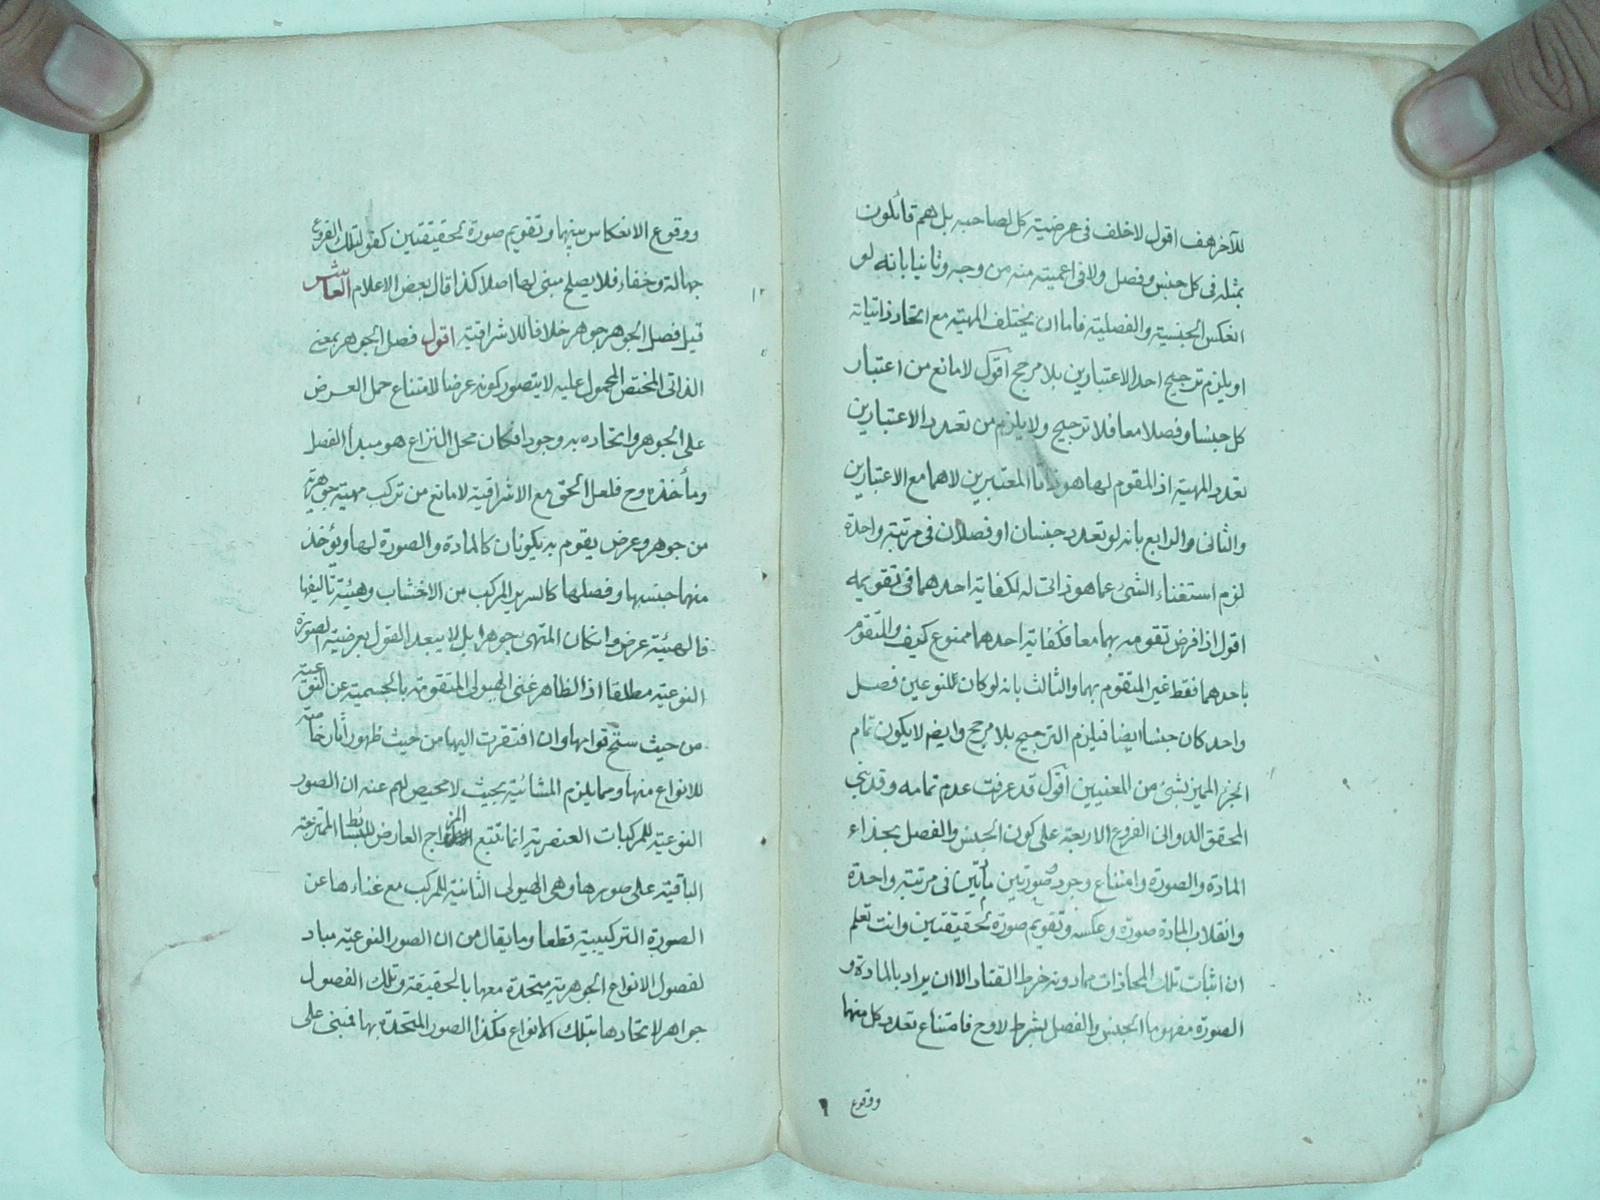 للآخر هف اقول لا خلف فى عرضية كل لصاحبه بل هم قائلون
بمثله فى كل جنس وفصل ولا فى اعميته منه من وجه وثانيا بانه لو
انعكس الجنسية والفصلية فاما ان يختلف المهية مع اتحاد ذاتياته
او يلزم ترجيح احد الاعتبارين بلا مرجح أقول لا مانع من اعتبار
كل جنسا وفصلا معا فلا ترجيح ولا يلزم من تعدد الاعتبارين
تعدد المهية اذ المقوم لها هو ذاتا المعتبرين لا هما مع الاعتبارين
والثانى والرابع بانه لو تعدد جنسان او فصلان فى مرتبة واحدة
لزم استغناء الشئ عما هو ذاتى له لكفاية احدهما فى تقويمه
اقول اذا فرض تقومه بهما معا فكفاية احدهما ممنوع كيف والمتقوم
باحدهما فقط غير المتقوم بهما والثالث بانه لو كان للنوعين فصل
واحد كان جنسا ايضا فيلزم الترجيح بلا مرجح وايضم لا يكون تمام
الجزء المميز لشئ من المعنيين أقول قد عرفت عدم تمامه وقد بنى
المحقق الدوانى الفروع الاربعة على كون الجنس والفصل بحذاء
المادة والصورة وامتناع وجود صورتين مادتين فى مرتبة واحدة
وانقلاب المادة صورة وعكسه وتقويم صورة لحقيقتين وانت تعلم
ان اثبات تلك المحاذات مما دونه خرط القتاد الا ان يراد بالمادة و
الصورة مفهوما الجنس والفصل بشرط لا وح فامتناع تعدد كل منها
ووقوع
ووقوع الانعكاس بينهما وتقويم صورة لحقيقتين كقول لتلك الفروع
جهالة وخفاء فلا يصلح مبنى لها اصلا كذا قال بعض الاعلام العاشر
قيل فصل الجوهر جوهر خلافا للاشراقية اقول فصل الجوهر بمعنى
الذاتى المختص المحمول عليه لا يتصور كونه عرضا لامتناع حمل العرض
على الجوهر واتحاده به وجودا فكان محل النزاع هو مبدأ الفصل
ومأخذه وح فلعل الحق مع الاشراقية لا مانع من تركب مهية جوهرية
من جوهر وعرض يقوم به يكونان كالمادة والصورة لها ويؤخذ
منهما جنسها وفصلها كالسرير المركب من الاخشاب وهيئة تأليفها
فالهيئة عرض وانكان المتهى جوهرا بل لا يبعد القول بعرضية الصورة
النوعية مطلقا اذ الظاهر غنى الهيولى المتقومة بالجسمية عن النوعية
من حيث سنخ قوامها وان افتقرت اليها من حيث ظهور آثار خاصة
للانواع منها ومما يلزم المشائية بحيث لا محيص لهم عنه ان الصور
النوعية للمركبات العنصرية انما تتبع المزاج العارض للبسائط الممتزجة
الباقية على صورها وهى الهيولى الثانية للمركب مع غناءها عن
الصورة التركيبية قطعا وما يقال من ان الصور النوعية مباد
لفصول الانواع الجوهرية متحدة معها بالحقيقة وتلك الفصول
جواهر لاتحادها بتلك الانواع فكذا الصور المتحدة بها فمبنى على